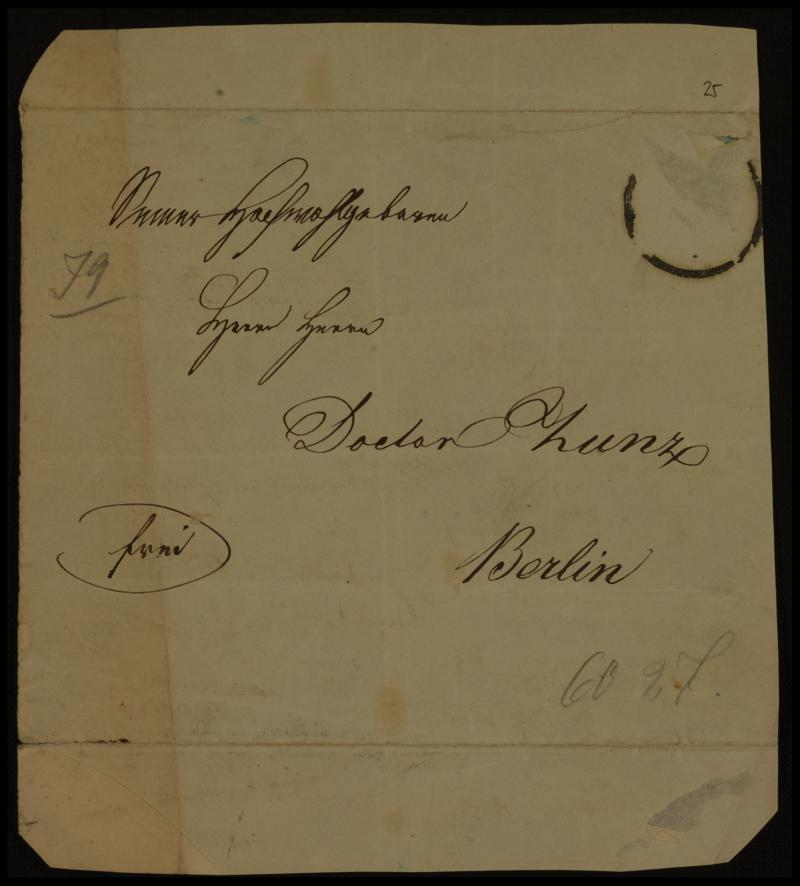 25
Seiner Hochwohlgeboren
79
Herrn Herrn
Doctor Zunz
frei
Berlin
60 27.